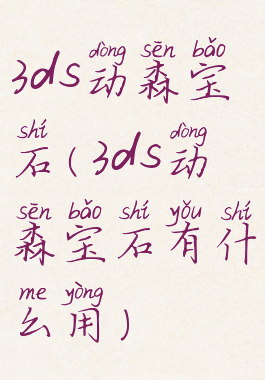 dòng sēn bǎo
3ds动森宝
shí dòng
石(3ds动
sēn bǎo shí yǒu shí
森宝石有什
me yòng
么用)